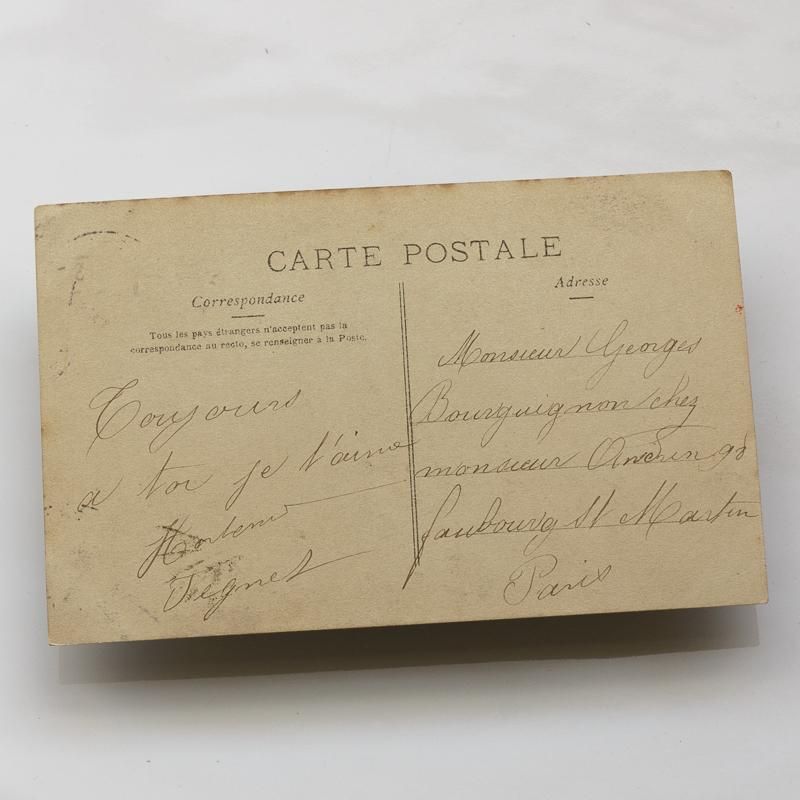 CARTE POSTALE
Correspondance
Tous les pays étrangers n'acceptent pas la
correspondance au recto, se renseigner à la Poste.
Toujours
a toi je t'aime
Adresse
Monsieur Georges
Bourguignon chez
monsieur 98
faubourg St Martin
Paris